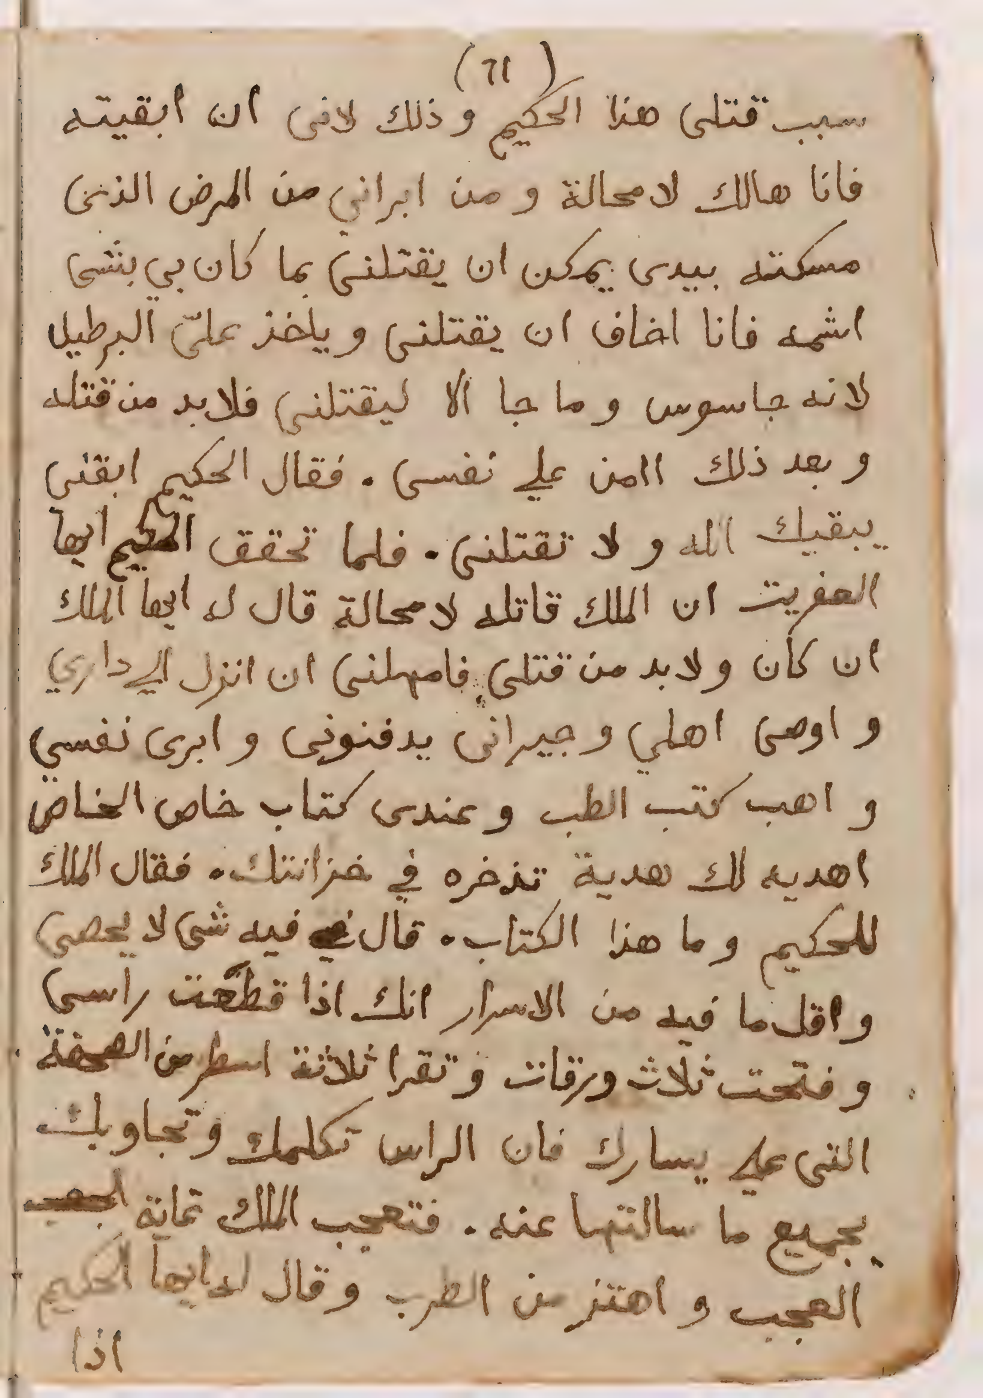 (٦١)
سبب قتلى هذا الحكيم وذلك لانى ان ابقيته
فانا هالك لا محالة و من ابراني من المرض الذى
مسكته بيدى يمكن ان يقتلنى بما كان بي بشى
اشمه فانا اخاف ان يقتلنى وياخذ علىّ البرطيل
لانه جاسوس و ما جا الا ليقتلنى فلا بد من قتله
و بعد ذلك اامن علي نفسى . فقال الحكيم ابقنى
يبقيك الله و لا تقتلنى . فلما تحقق الحكيم ايها
العفريت ان الملك قاتله لا محالة قال له ايها الملك
ان كان ولا بد من قتلى فامهلنى ان انزل الي داري
و اوصى اهلي وجيرانى يدفنونى و ابرى نفسي
و اهب كتب الطب وعندى كتاب خاص الخاص
اهديه لك هدية تذخره في خزانتك . فقال الملك
للحكيم وما هذا الكتاب . قال فيه شى لا يحصى
واقل ما فيه من الاسرار انك اذا قطعت راسى
و فتحت ثلاث ورقات و تقرا ثلاثة اسطر من الصحفة
التى علي يسارك فان الراس تكلمك وتجاوبك
بجميع ما سالتها عنه . فتعجب الملك غاية
العجب و اهتز من الطرب وقال له ايها الحكيم
اذا